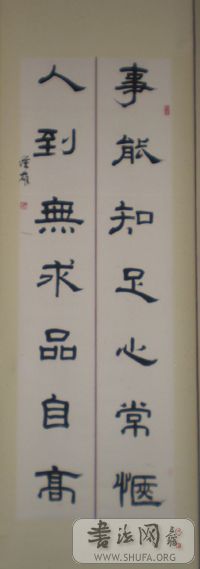 事能知足心常愜
人到無求品自高
書法网
WWW.SHUFA.ORG